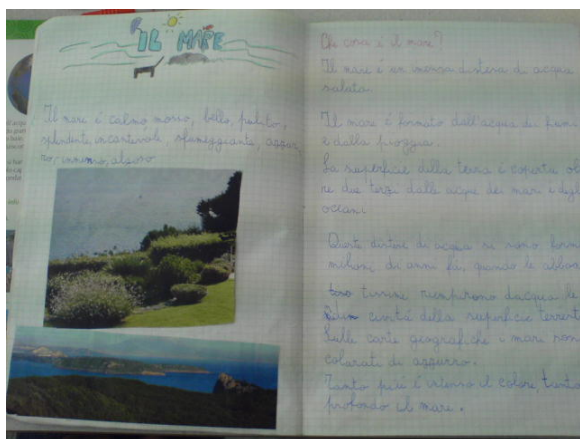 IL MARE
Il mare è calmo mosso, bello, pulito,
splendente, incantevole, spumeggiante, azzur
ro immenso, alsoro
Che cosa è il mare?
Il mare è un immensa distesa di acqua
salata.
Il mare è formato dall'acqua dei fiumi
e dalla pioggia.
La superficie della terra è coperta ol
re due terzi dalle acque dei mari e degl
oceani
Queste distese di acqua si sono form
milioni di anni fa, quando le abbon
terrene riempirono d'acqua le
cavità della superficie terrest
Sulle carte geografiche i mari sono
colorati di azzurro.
Tanto più è intenso il colore, tanto
profondo il mare.